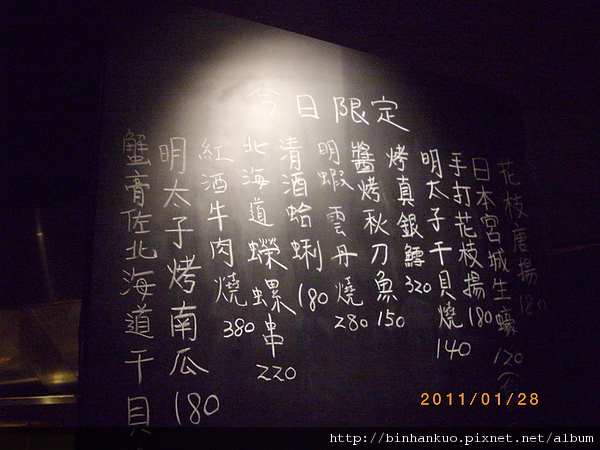 今日限定
花枝唐揚 180
日本宮城生蠔 120
手打花枝揚 180
明太子干貝燒 140
烤真銀鱈 320
醬烤秋刀魚 150
明蝦雲丹燒 280
清酒蛤蜊 180
北海道蠑螺串 220
紅酒牛肉燒 380
明太子烤南瓜 180
蟹膏佐北海道干貝
2011/01/28
http://binhankuo.pixnet.net/album